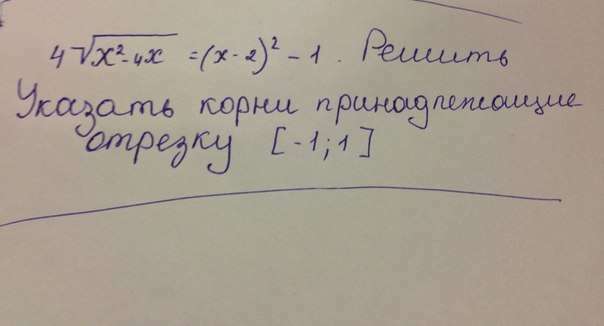 4√x²-4x = (x-2)² - 1. Решить
Указать корни принадлежащие
отрезку [-1;1]